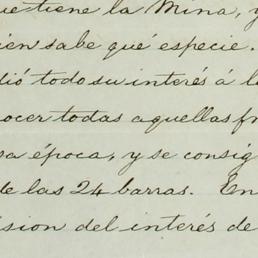 ue tiene la Mina, y
ien sabe qué especie.
dió todo su interés á l
ocer todas aquellas fr
sa época, y se consig
de las 24 barras. En
ision del interés de